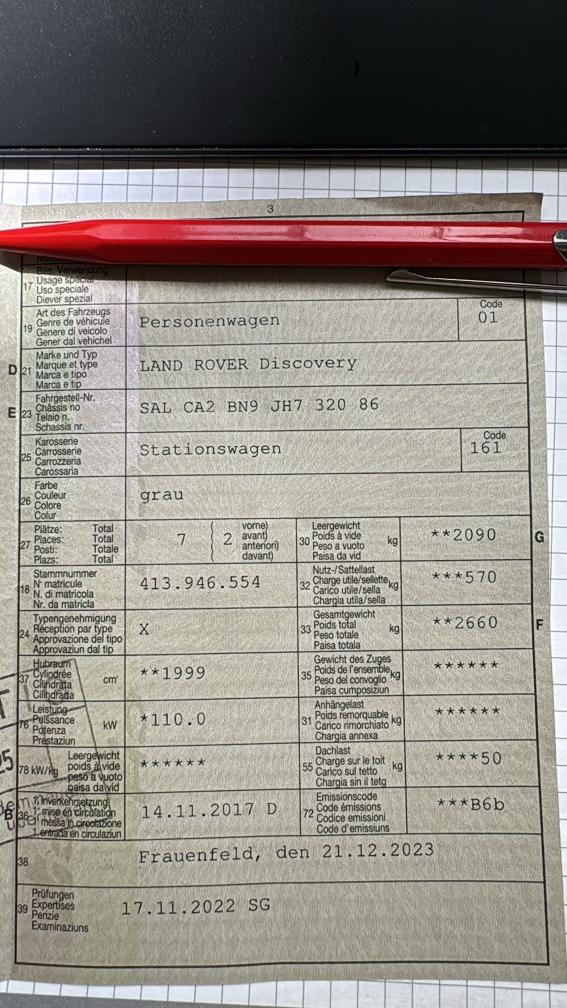 3
Bes. Verwendung
17 Usage spécial
Uso speciale
Diever spezial
Art des Fahrzeugs
19 Genre de véhicule
Genere di veicolo
Gener dal vehichel
Personenwagen
Code
01
Marke und Typ
D 21 Marque et type
Marca e tipo
Marca e tip
LAND ROVER Discovery
Fahrgestell-Nr.
E 23 Châssis no
Telaio n.
Schassis nr.
SAL CA2 BN9 JH7 320 86
Karosserie
25 Carrosserie
Carrozzeria
Carossaria
Stationswagen
Code
161
Farbe
26 Couleur
Colore
Colur
grau
Plätze: Total
27 Places: Total
Posti: Totale
Plazs: Total
7
2
vorne)
avant)
anteriori)
davant)
Leergewicht
30 Poids à vide kg
Peso a vuoto
Paisa da vid
**2090 G
Stammnummer
18 N° matricule
N. di matricola
Nr. da matricla
413.946.554
Nutz-/Sattellast
32 Charge utile/sellette kg
Carico utile/sella
Chargia utila/sella
***570
Typengenehmigung
24 Réception par type
Approvazione del tipo
Approvaziun dal tip
X
Gesamtgewicht
33 Poids total kg
Peso totale
Paisa totala
**2660 F
Hubraum
37 Cylindrée cm³
Cilindrata
Cilindrada
**1999
Gewicht des Zuges
35 Poids de l'ensemble kg
Peso del convoglio
Paisa cumposiziun
******
Leistung
76 Puissance kW
Potenza
Prestaziun
*110.0
Anhängelast
31 Poids remorquable kg
Carico rimorchiato
Chargia annexa
******
Leergewicht
78 kW/kg poids à vide
peso a vuoto
paisa da vid
******
Dachlast
55 Charge sur le toit kg
Carico sul tetto
Chargia sin il tetg
****50
1. Inverkehrsetzung
B 36 1. mise en circulation
1. messa in circolazione
1. entrada en circulaziun
14.11.2017 D
Emissionscode
72 Code émissions
Codice emissioni
Code d'emissiuns
***B6b
38 Frauenfeld, den 21.12.2023
Prüfungen
39 Expertises
Perizie
Examinaziuns
17.11.2022 SG